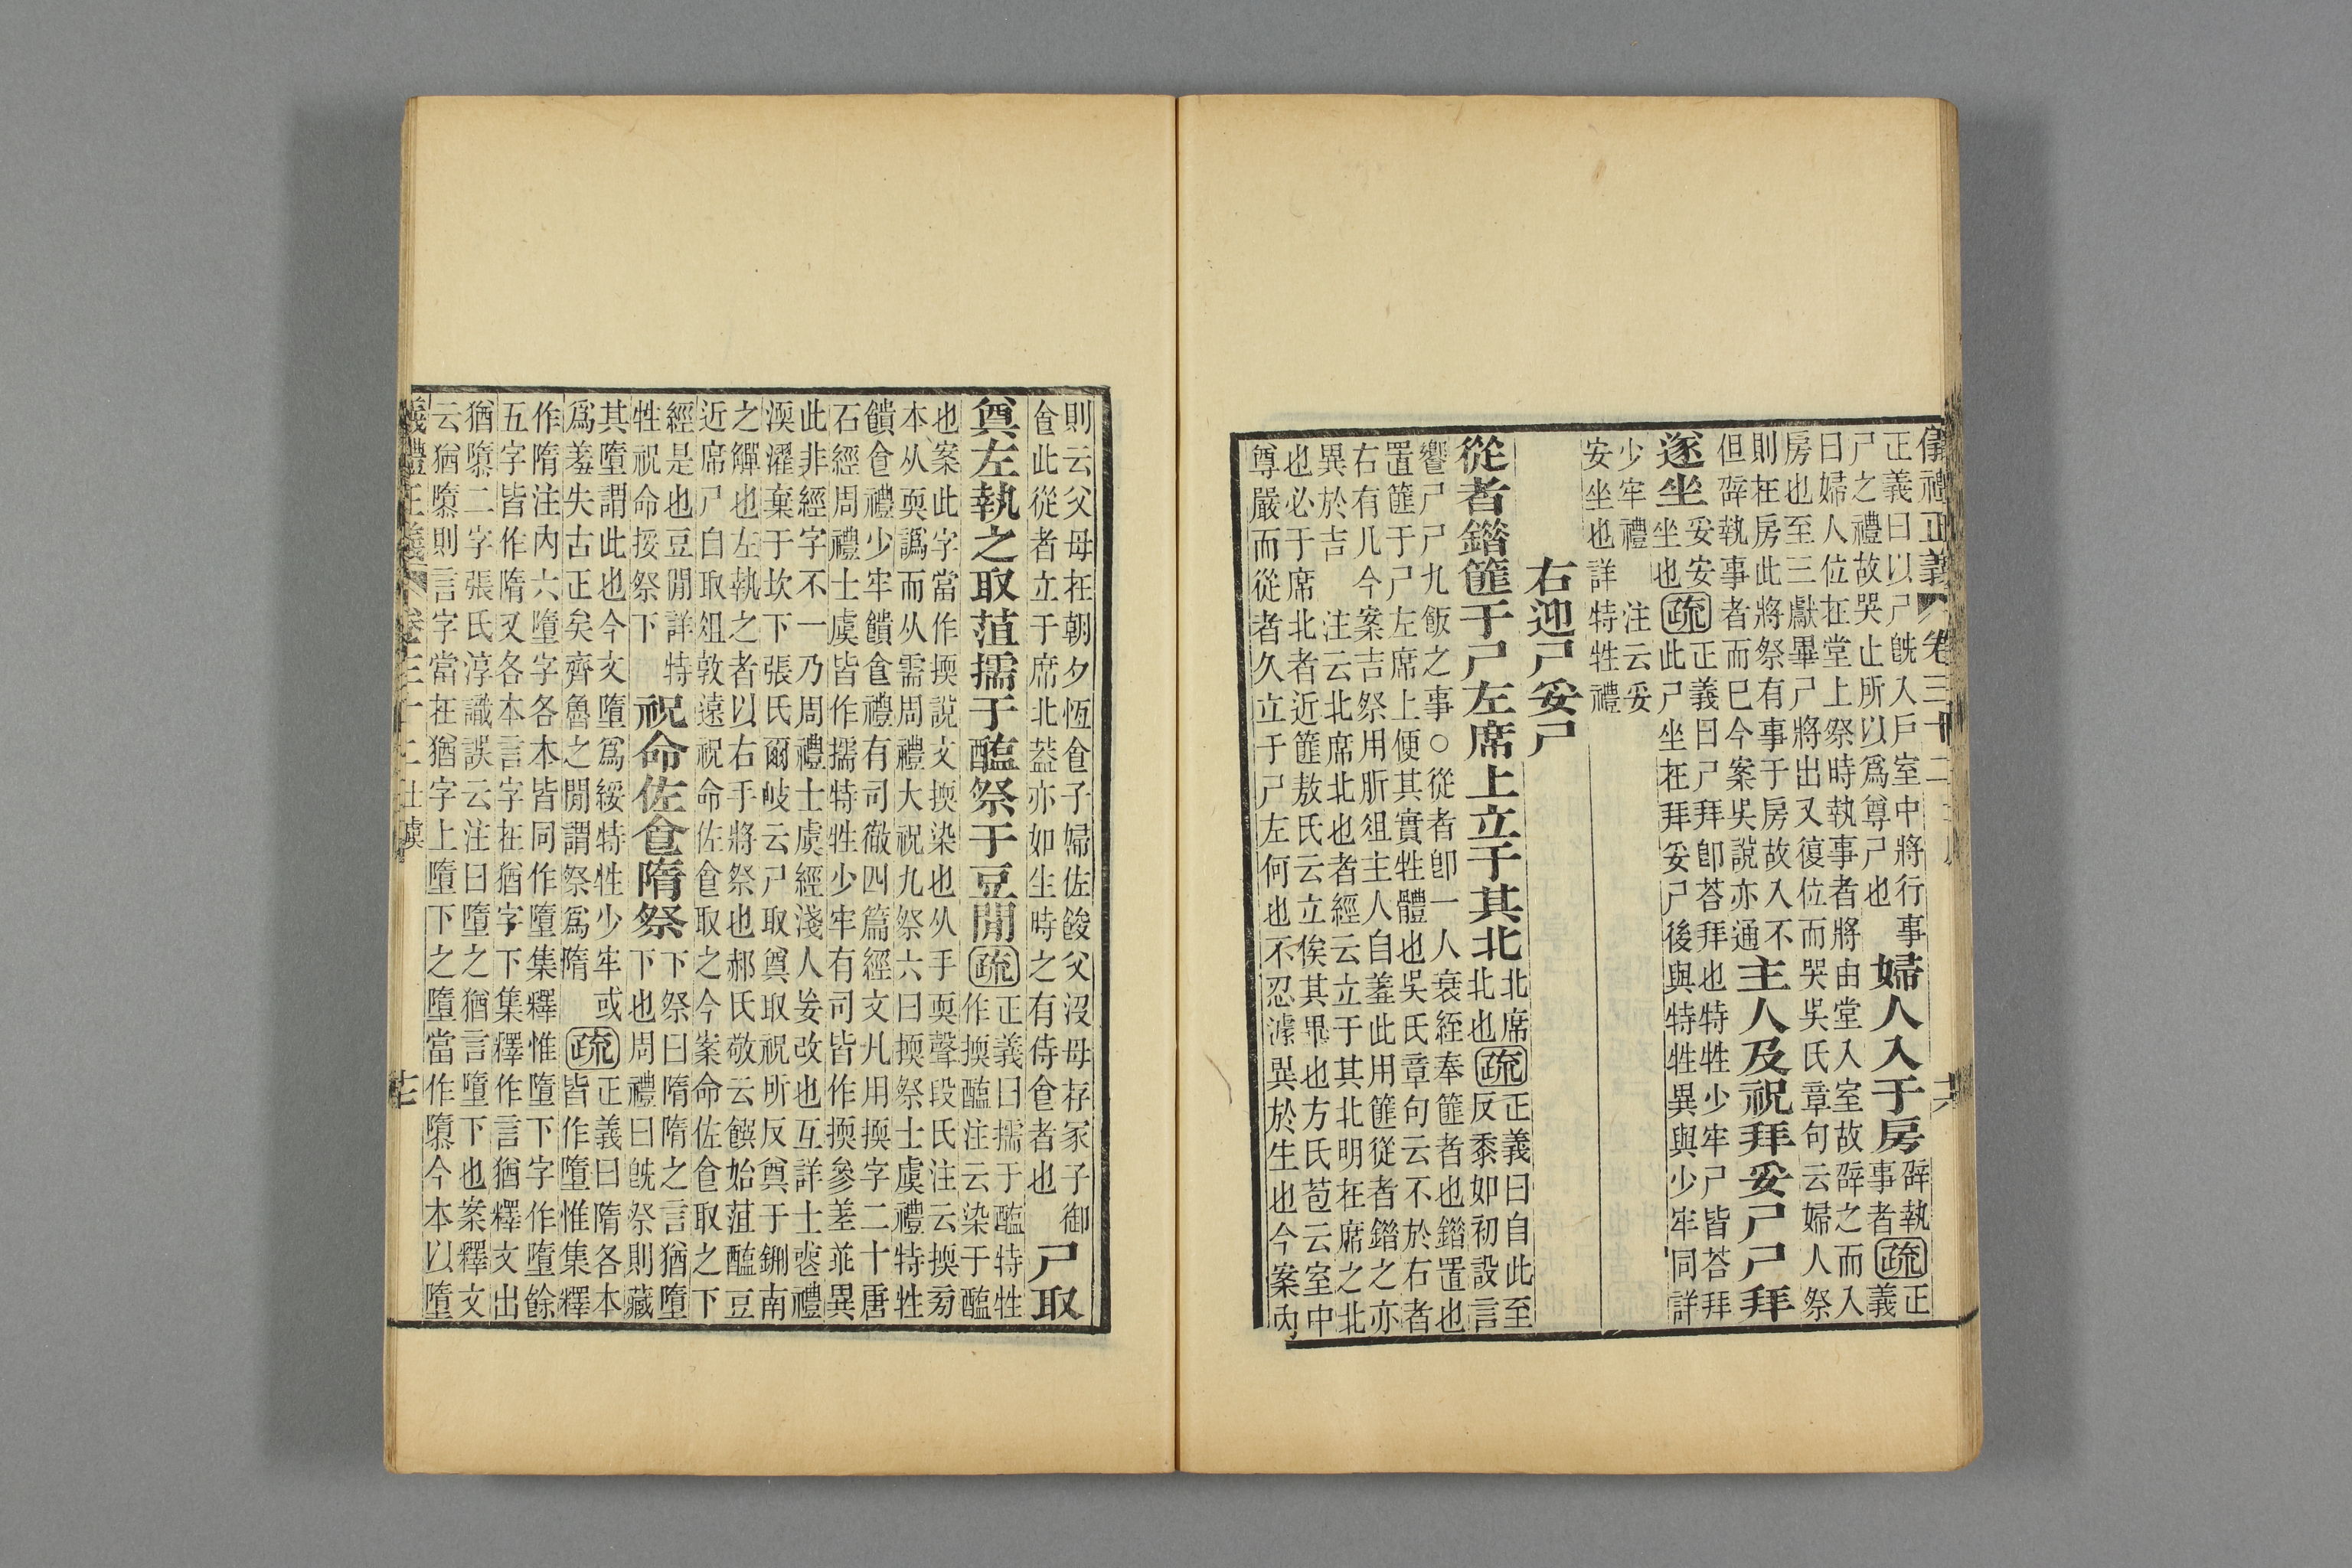 儀禮正義 卷三十二
正義曰以尸旣入戶室中將行事
尸之禮故哭止所以爲尊尸也
婦人入于房
辟執
事者
疏
正
義
曰婦人位在堂上祭時執事者將由堂入室故辟之而入
房也至三獻畢尸將出又復位而哭吳氏章句云婦人祭
則在房此將祭有事于房故入不
但辟執事者而已今案吳說亦通
主人及祝拜妥尸尸拜
遂坐
妥安
坐也
疏
正義曰尸拜卽荅拜也特牲少牢尸皆荅拜
此尸坐在拜妥尸後與特牲異與少牢同詳
少牢禮 注云妥
安坐也詳特牲禮
右迎尸妥尸
從者錯篚于尸左席上立于其北
北席
北也
疏
正義曰自此至
反黍如初設言
饗尸尸九飯之事○從者卽一人衰絰奉篚者也錯置也
置篚于尸左席上便其實牲體也吳氏章句云不於右者
右有几今案吉祭用肵俎主人自羞此用篚從者錯之亦
異於吉 注云北席北也者經云立于其北明在席之北
也必于席北者近篚敖氏云立俟其畢也方氏苞云室中
尊嚴而從者久立于尸左何也不忍遽異於生也今案內
則云父母在朝夕恆食子婦佐餕父沒母存冢子御
食此從者立于席北蓋亦如生時之有侍食者也
尸取
奠左執之取菹擩于醢祭于豆閒
疏
正義曰擩于醢特牲
作擩醢注云染于醢
也案此字當作擩說文擩染也从手耎聲段氏注云擩㓞
本从耎譌而从需周禮大祝九祭六曰擩祭士虞禮特牲
饋食禮少牢饋食禮有司徹四篇經文凡用擩字二十唐
石經周禮士虞皆作擩特牲少牢有司皆作擩參差乖異
此非經字不一乃周禮士虞經淺人妄改也互詳士喪禮
渜濯棄于坎下張氏爾岐云尸取奠取祝所反奠于鉶南
之觶也左執之者以右手將祭也郝氏敬云饌始菹醢豆
近席尸自取俎敦遠祝命佐食取之今案命佐食取之下
經是也豆閒詳特
牲祝命挼祭下
祝命佐食隋祭
下祭曰隋隋之言猶墮
下也周禮曰旣祭則藏
其墮謂此也今文墮爲綏特牲少牢或
爲羞失古正矣齊魯之閒謂祭爲隋
疏
正義曰隋各本
皆作墮惟集釋
作隋注內六墮字各本皆同作墮集釋惟墮下字作墮餘
五字皆作隋又各本言字在猶字下集釋作言猶釋文出
猶隳二字張氏淳識誤云注曰墮之猶言墮下也案釋文
云猶隳則言字當在猶字上墮下之墮當作隳今本以墮